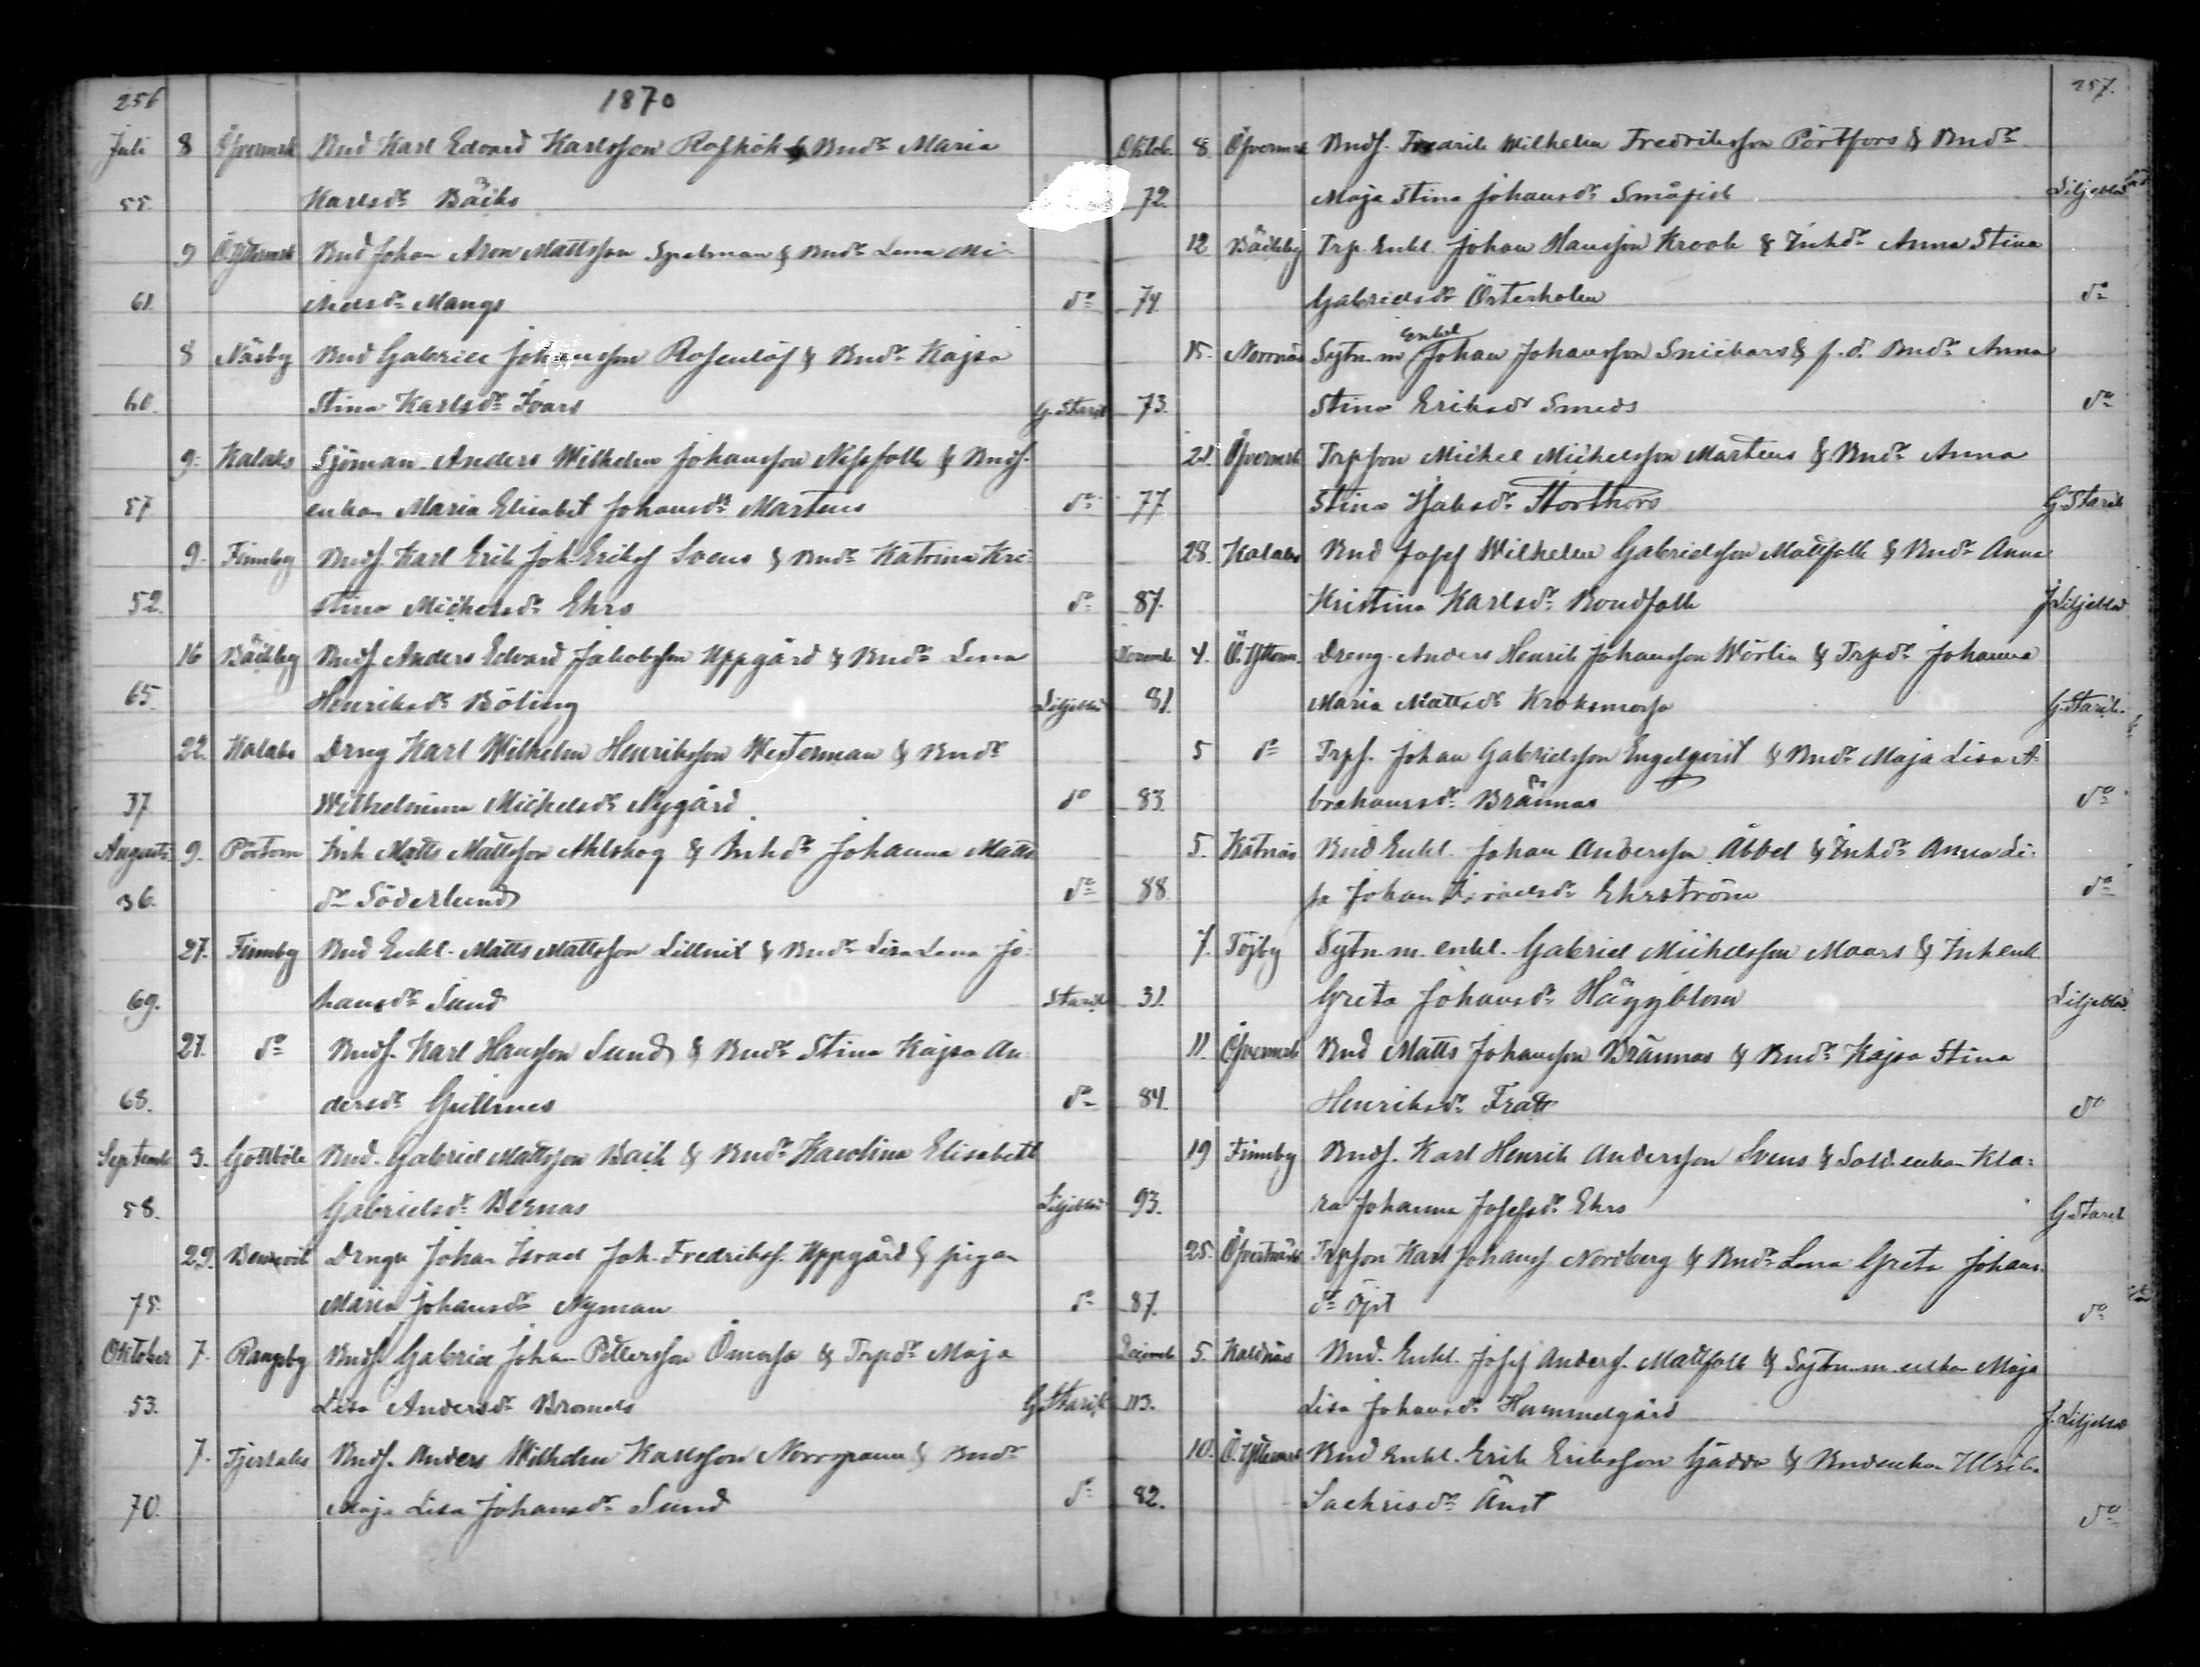 256
1870
Juli 8 Öfvermrk Bnd Karl Edvard Karlsson Rosköh & Bndr Maria
55. Karlsdr Bäcks
9 Ö.Yttermrk Bnd Johan Aron Mattsson Spelman & Bndr Lena Mi-
61. chelsdr Mangs do
8 Näsby Bnd Gabriel Johansson Rosenlöf & Bndr Kajsa
60. Stina Karlsdr Ivars G. Starck
9. Kalaks Sjöman Anders Wilhelm Johansson Nissfolk & Bnds.
57 enkan Maria Elisabet Johansdr Martens do
9. Finnby Bnds. Karl Erik Joh. Eriks Svens & Bndr Katrina Kri-
52. stina Michelsdr Ehrs do
16 Bäckby Bnds. Anders Edvard Jakobsson Uppgård & Bndr Lena
65. Henriksdr Böling Liljeblad
22. Kalaks Dreng Karl Wilhelm Henriksson Westerman & Bndr
37 Wilhelmina Michelsdr Nygård do
Augusti 9. Pörtom Inh Matts Mattsson Ahlskog & Inhdr Johanna Matts
36. dr Söderlund do
27. Finnby Bnd Enkl. Matts Mattsson Lillnix & Bndr Lisa Lena Jo-
69. hansdr Sund Starck
27. do Bnds. Karl Hansson Sund & Bndr Stina Kajsa An-
68. dersdr Gullmes do
Septemb 3. Gottböle Bnd. Gabriel Mattsson Back & Bndr Karolina Elisabeth
58. Gabrielsdr Bernas Liljeblad
29. Benvik Drngn Johan Israel Joh. Fredrikss. Uppgård & pigan
75. Maria Johansdr Nyman do
Oktober 7. Rangsby Bnds. Gabriel Johan Pettersson Ömossa & Trpdr Maja
53. Lisa Andersdr Bromels G. Starck
7. Tjerlaks Bnds. Anders Wilhelm Karlsson Norrgrann & Bndr
70. Maja Lisa Johansdr Sund do
257.
Oktob. 8. Öfvermrk Bnds. Fredrik Wilhelm Fredriksson Pörtfors & Bndr
72. Maja Stina Johansdr Småfisk Liljeblad
12 Bäckby Trp. Enkl. Johan Hansson Krook & Inhdr Anna Stina
74. Gabrielsdr Österholm do
15. Norrnäs Sytn. m enkl Johan Johansson Snickars & f. d. Bndr Anna
73. Stina Eriksdr Smeds do
21. Öfvermrk Trpson Michel Michelsson Martens & Bndr Anna
77 Stina Isaksdr Storthors G. Starck
28. Kalaks Bnd Josef Wilhelm Gabrielsson Mattfolk & Bndr Anna
87. Kristina Karlsdr Bondfolk J. Liljeblad
Novemb. 4. Ö. Ytterm. Dreng Anders Henrik Johansson Wörlin & Trpdr Johanna
81. Maria Mattsdr Kroksmossa G. Starck.
5 do Trps. Johan Gabrielsson Engelqvist & Bndr Maja Lisa A-
83. brahamsdr Brännas do
5. Kätnäs Bnd Enkl. Johan Andersson Åbbel & Inhdr Anna Li-
88. sa Johan Israelsdr Ehrström do
7. Töjby Sytn. m. enkl. Gabriel Michelsson Maars & Inhenk
31. Greta Johansdr Häggblom Liljeblad
11. Öfvermrk Bnd Matts Johansson Brännas & Bndr Kajsa Stina
84. Henriksdr Fratt do
19 Finnby Bnds. Karl Henrik Andersson Svens & Sold. enkan Kla-
93. ra Johanna Josefsdr Ehrs G. Starck
25. Öfverträsk Trpson Karl Johans Nordberg & Bndr Lena Greta Johans-
87. dr Öjst do
Decemb 5. Kaldnäs Bnd. Enkl. Josef Anders. Mattfolk & Sytn. m. enkan Maja
113. Lisa Johansdr Hammelgård J. Liljeblad
10. Ö. Yttermrk Bnd Enkl. Erik Eriksson Gädda & Bndenkan Ulrika
82. Sachrisdr Änst do